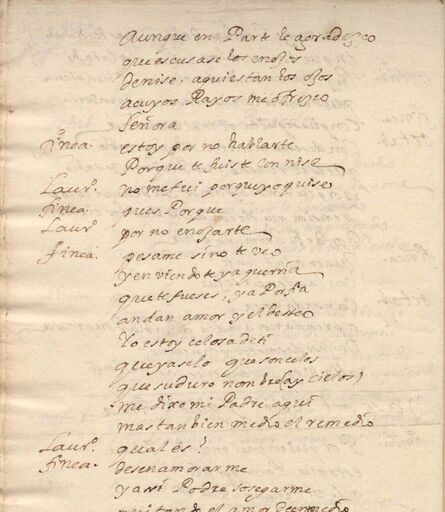 Aunque en Parte lo agradezco
que escusase los enojos
de nise. aqui estan los ojos
a cuyos Rayos me ofrezco
Señora
finea. estoy por no hablarte
Porque te fuiste con nise
Laurº no me fui porque yo quise
finea. pues Porque
Laurº por no enojarte
finea. pesame si no te veo
y en viendote ya querria
que te fueses, ya Porfia
andan amor y el deseo
Yo estoy celosa de ti
que ya se lo que son celos
que su duro nombre ay cielos!
me dixo mi Padre aqui
mas tanbien me dio el remedio
Laurº. qual es?
finea. desenamorarme
y assi Podre sosegarme
quitando el amor de enmedio